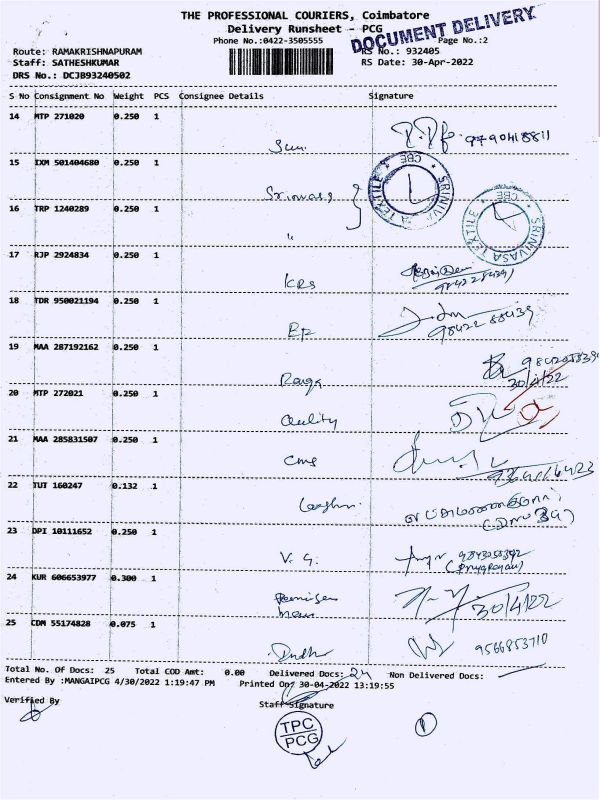 THE PROFESSIONAL COURIERS, Coimbatore
Delivery Runsheet - PCG
Phone No.:0422-3505555
DOCUMENT DELIVERY
Page No.:2
Route: RAMAKRISHNAPURAM
RS No.: 932405
Staff: SATHESHKUMAR
RS Date: 30-Apr-2022
DRS No.: DCJB93240502
S No Consignment No Weight PCS Consignee Details Signature
14 MTP 271020 0.250 1
9790418811
15 IXM 501404680 0.250 1
SRINIVASA TEXTILE * CBE *
16 TRP 1240289 0.250 1
"
SRINIVASA TEXTILE * CBE *
17 RJP 2924834 0.250 1 KRS
18 TDR 950021194 0.250 1
98422 88439
19 MAA 287192162 0.250 1 Ranga
30/4/22
20 MTP 272021 0.250 1 Quality
21 MAA 285831507 0.250 1 CMS
22 TUT 160247 0.132 1
23 DPI 10111652 0.250 1 V. G.
24 KUR 606653977 0.300 1
30/4/22
25 CDM 55174828 0.075 1
9566853710
Total No. Of Docs: 25 Total COD Amt: 0.00 Delivered Docs: 24 Non Delivered Docs:
Entered By :MANGAIPCG 4/30/2022 1:19:47 PM Printed On: 30-04-2022 13:19:55
Verified By
Staff Signature
TPC
PCG
1